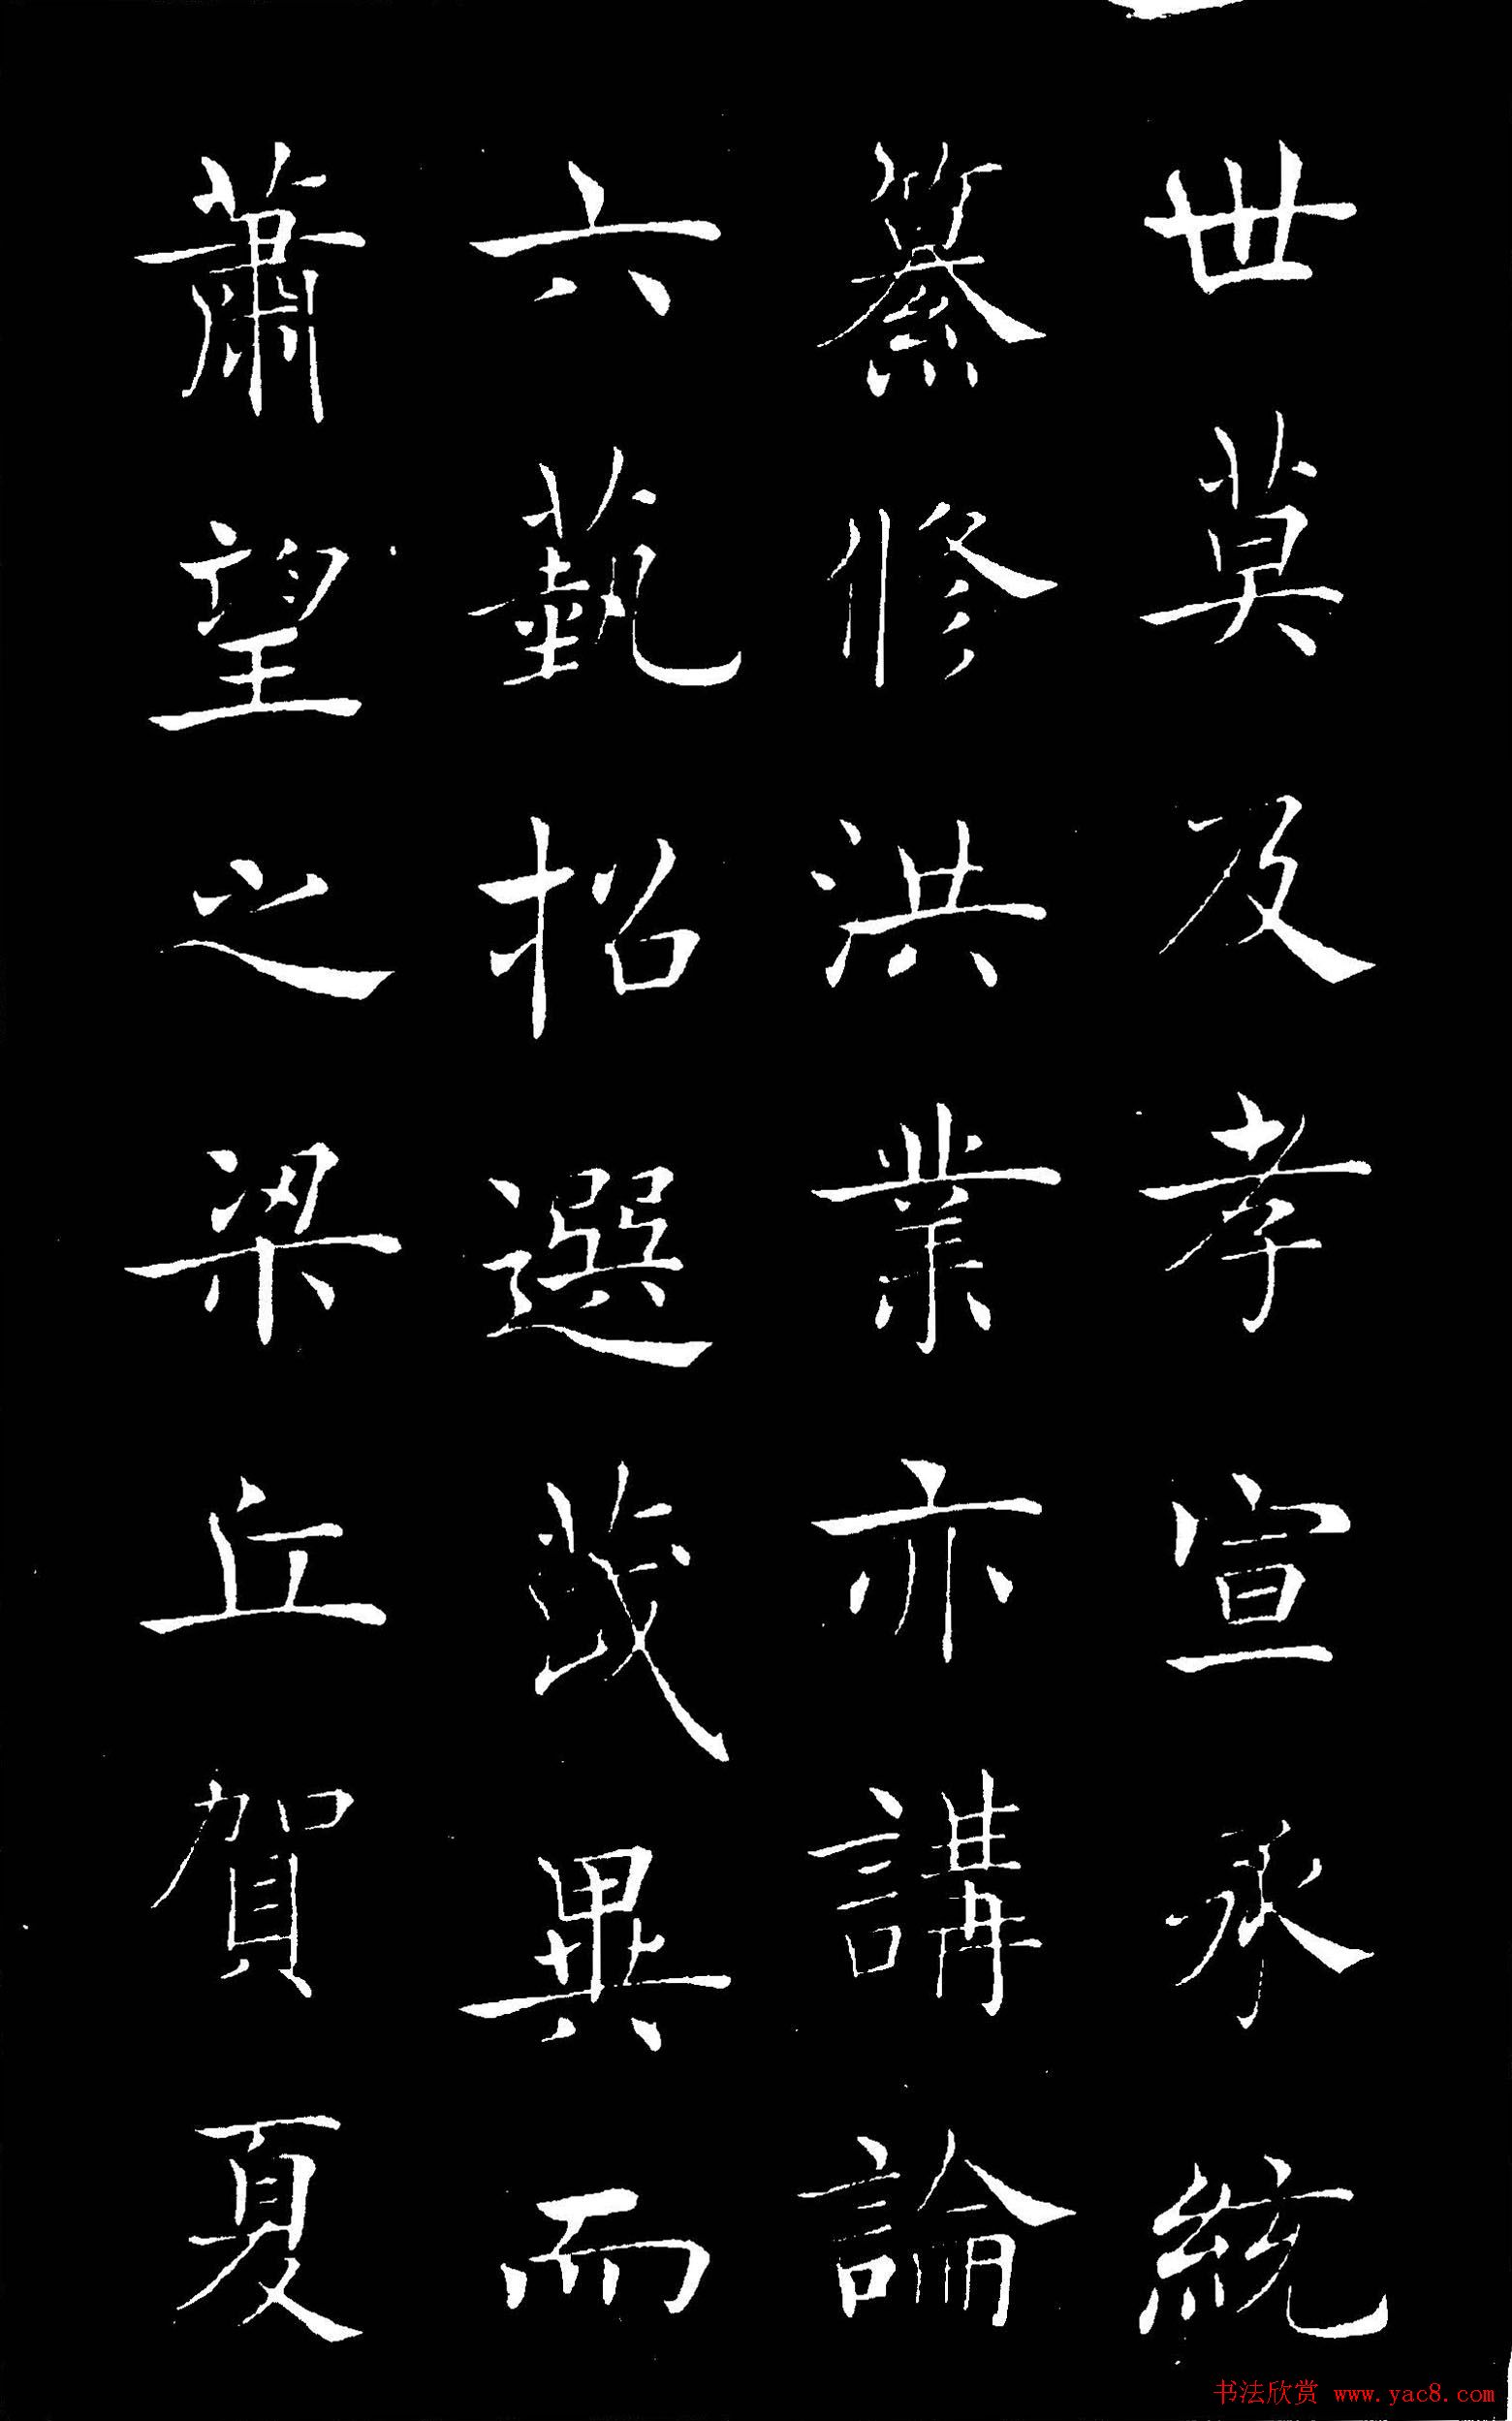 世莫及孝宣承統
纂修洪業亦講論
六藝招選茂異而
蕭望之梁丘賀夏
书法欣赏 www.yac8.com